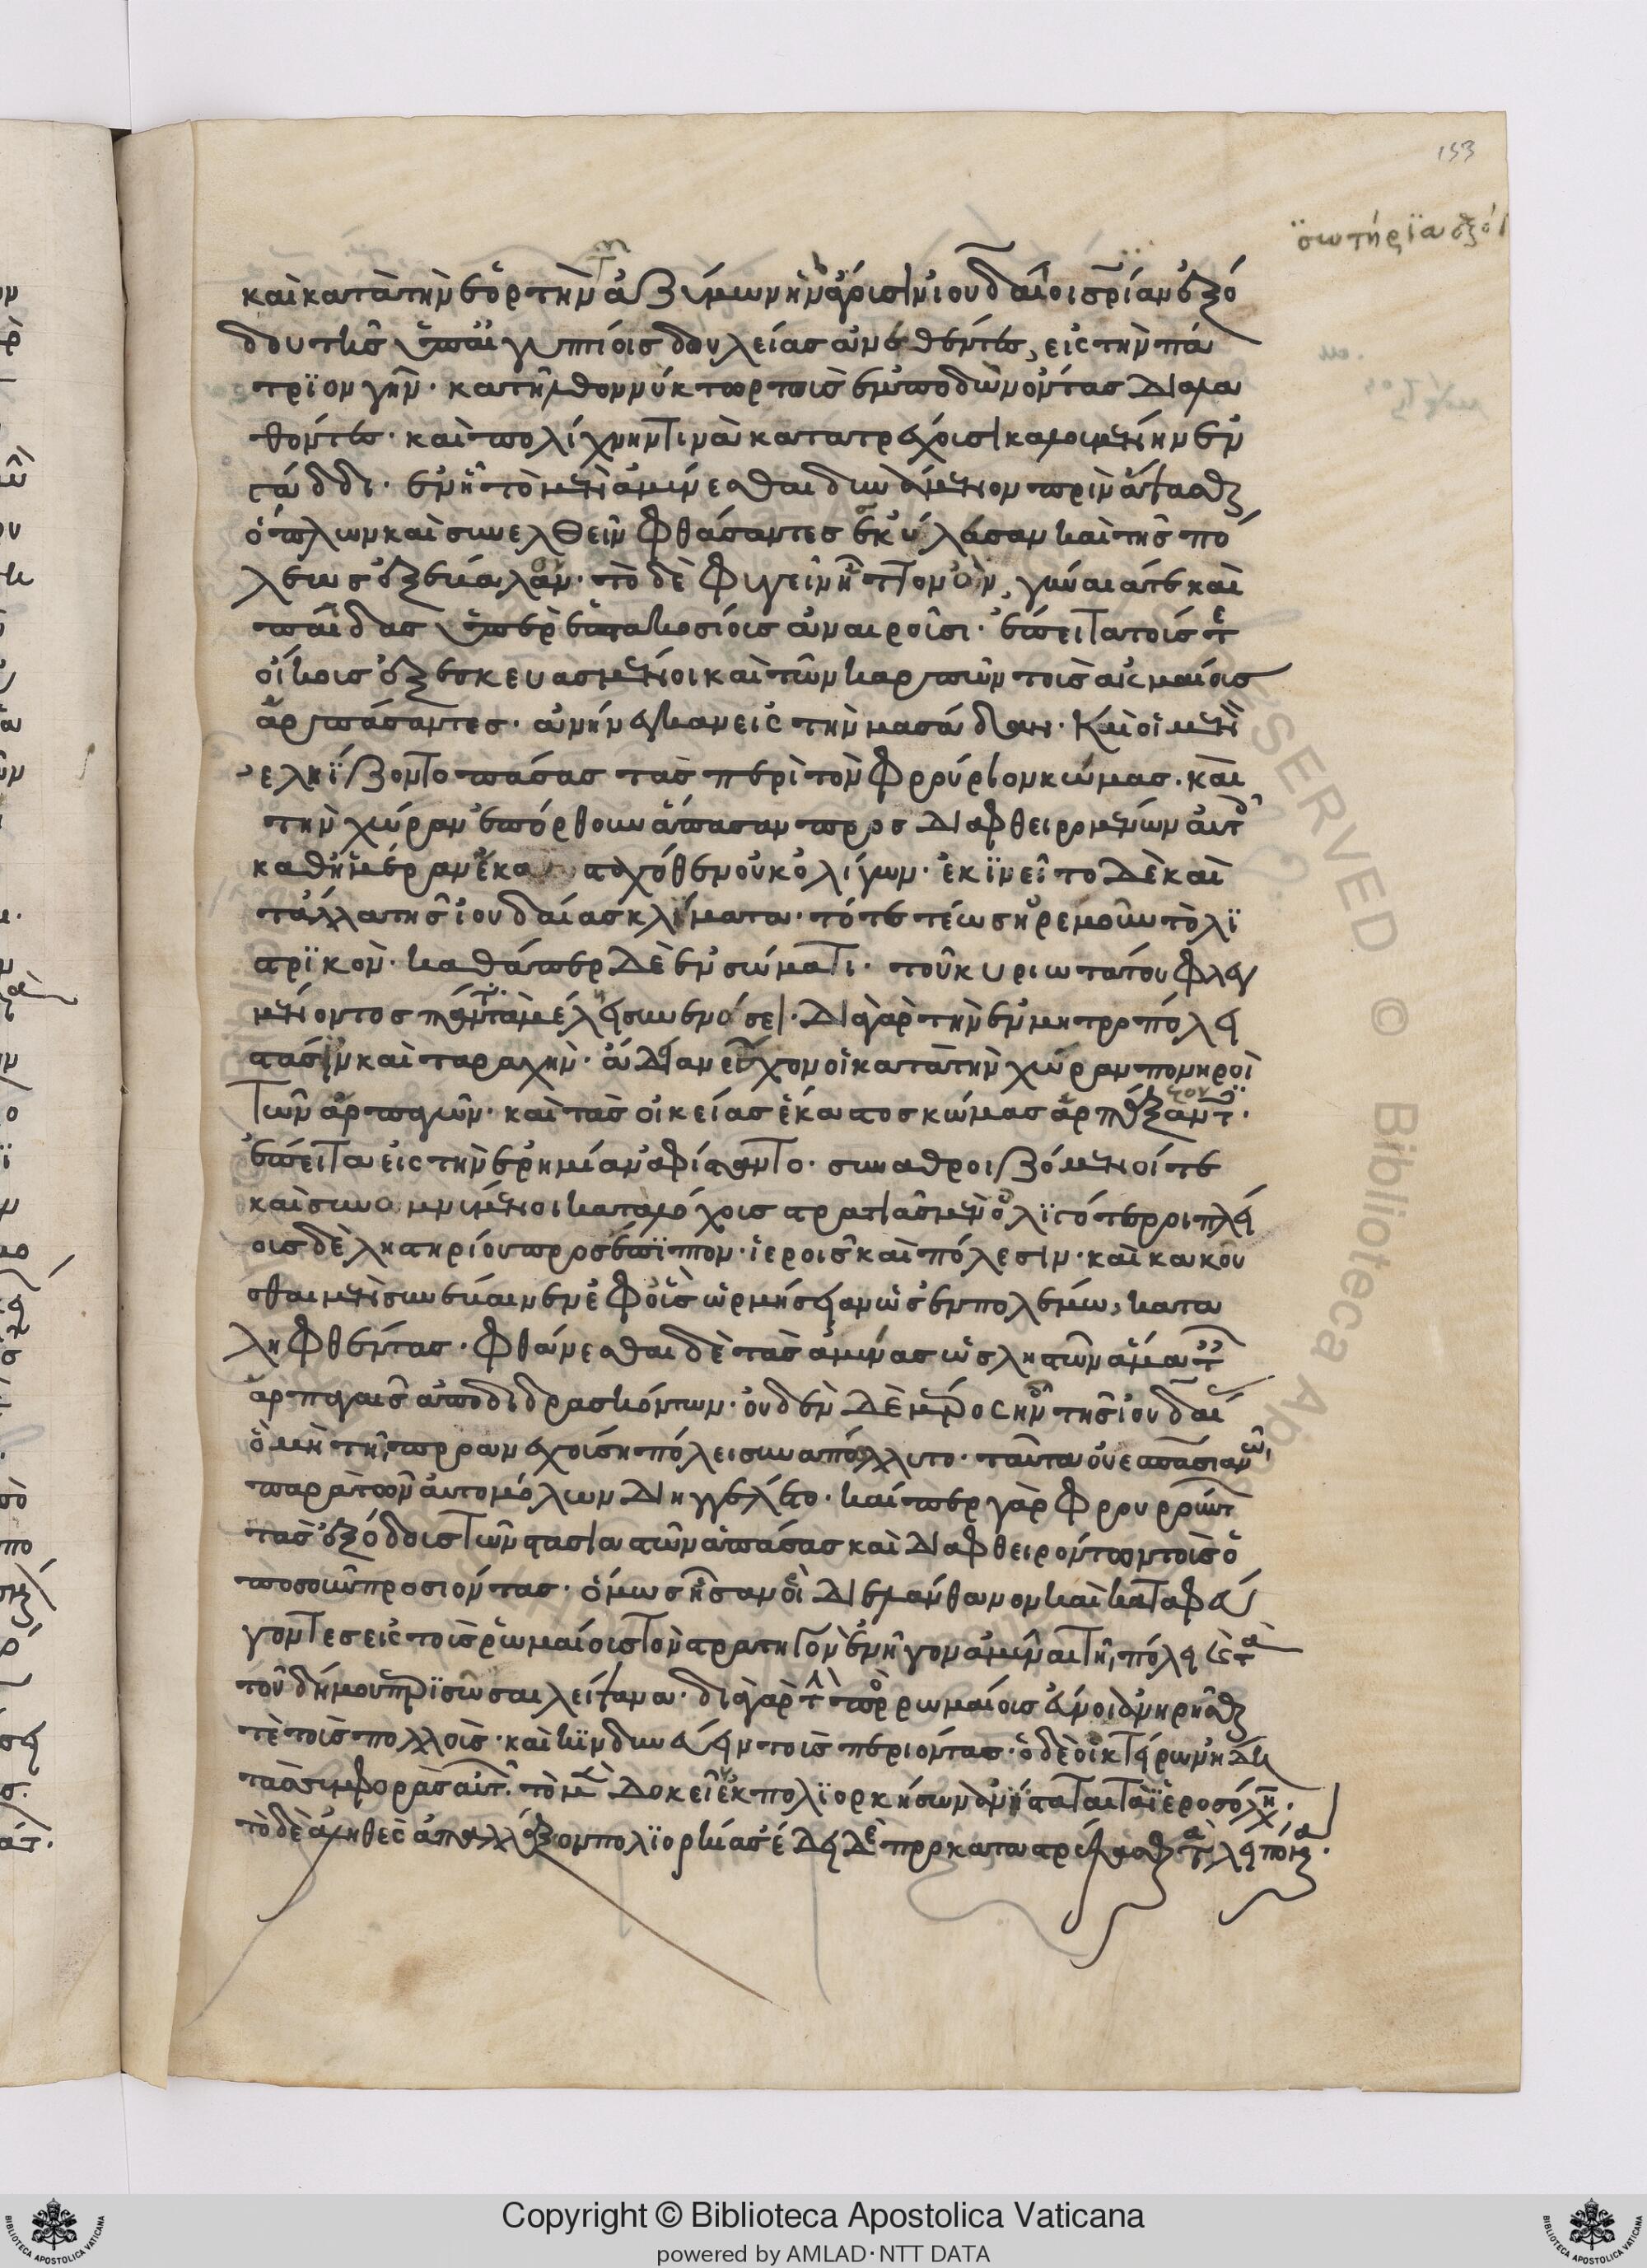 153
σωτήρϊα ἐξό
καὶ κατὰ τὴν ἑορτὴν ἀζύμων ἣν ἄγουσιν ἰουδαῖοι σρίαν ἐξό
δου τῆς ὑπ αἰγυπτίοις δουλείας ἀνεθέντες, εἰς τὴν πά
τρϊον γῆν· κατῆλθον νύκτωρ τοὺς ἐμποδὼν ὄντας διαλα
θόντες· καὶ πολίχνην τινὰ κατατρέχουσι καλουμένην ἐν
γάδδι· ἐν ᾗ τὸ μὲν ἀμύνεσθαι δυνάμενον πρὶν ἅψασθαι
ὅπλων καὶ συνελθεῖν φθάσαντες ἐσκύλασαν καὶ τῆς πό
λεως ἐξέβαλον· τὸ δὲ φυγεῖν ἧττον ὂν, γύναιά τε καὶ
παῖδας ὑπὲρ ἑπτακοσίους ἀναιροῦσι· ἔπειτα τούς τε
οἴκους ἐξεσκευασμένοι καὶ τῶν καρπῶν τοὺς ἀκμαίους
ἁρπάσαντες· ἀνήνεγκαν εἰς τὴν μασάδαν· Καὶ οἱ μὲν
ἐληΐζοντο πάσας τὰς περὶ τὸν φρούριον κώμας· καὶ
τὴν χώραν ἐπόρθουν ἅπασαν προσδιαφθειρομένων αὐτοῖς
καθ ἡμέραν ἑκασταχόθεν οὐκ ὀλίγων· ἐκινεῖτο δὲ καὶ
τἄλλα τῆς ἰουδαίας κλίματα· τό τε τέως ἠρεμοῦν τὸ λϊ
στρϊκόν· καθάπερ δὲ ἐν σώματι· τοῦ κυριωτάτου φλεγ
μαίνοντος πάντα τὰ μέλη συνενόσει· διὰ γὰρ τὴν ἐν μητροπόλει
στάσιν καὶ ταραχὴν· ἄδειαν ἔσχον οἱ κατὰ τὴν χώραν πονηροὶ
τῶν ἁρπαγῶν· καὶ τὰς οἰκείας ἕκαστος κώμας ἁρπάζοντες·
ἔπειτα εἰς τὴν ἐρημίαν ἀφίσταντο· συναθροιζόμενοί τε
καὶ συνομνύμενοι κατὰ λόχους στρατιᾶς μὲν ὀλϊγώτεροι πλεί
ους δὲ λῃστηρίου προσέπϊπτον· ἱεροῖς καὶ πόλεσιν· καὶ κακοῦ
σθαι μὲν συνέβαινεν ἐφ οὓς ὁρμήσειαν ὡς ἐν πολέμῳ, κατα
ληφθέντας· φθάνεσθαι δὲ τὰς ἀμύνας ὡς λῃστῶν ἅμα ταῖς
ἁρπαγαῖς ἀποδιδρασκόντων· οὐδὲν δὲ μέρος ἦν τῆς ἰουδαί
ὃ μὴ τῇ προανεχούσῃ πόλει συναπόλλυτο· ταῦτα οὐεσπασιανῷ,
παρὰ τῶν αὐτομόλων διηγγέλετο· καίπερ γὰρ φρουρούντων
τὰς ἐξόδους τῶν στασιαστῶν ἁπάσας καὶ διαφθειρόντων τοὺς ὁ
πωσοῦν προσιόντας· ὅμως ἦσαν οἳ διελάνθανον καὶ καταφεύ
γοντες εἰς τοὺς ῥωμαίους τὸν στρατηγὸν ἐνῆγον ἀμῦναι τῇ πόλει καὶ τὰ
τοῦ δήμου περϊσῶσαι λείψανα· διὰ γὰρ τὴν πρὸς ῥωμαίους εὔνοιαν ἀνῃρῆσθαί
τε τοὺς πολλοὺς· καὶ κϊνδυνεύειν τοὺς περιόντας· ὁ δὲ οἰκτείρων ἤδη
τὰς συμφορὰς αὐτῶν τὸ μὲν δοκεῖν ἐκπολϊορκήσων ἀνίσταται τὰ ἱεροσόλυμα·
τὸ δὲ ἀληθὲς ἀπαλλάξων πολϊορκίας ἔδει δὲ προκαταστρέψασθαι τὰ λειπόμενα·